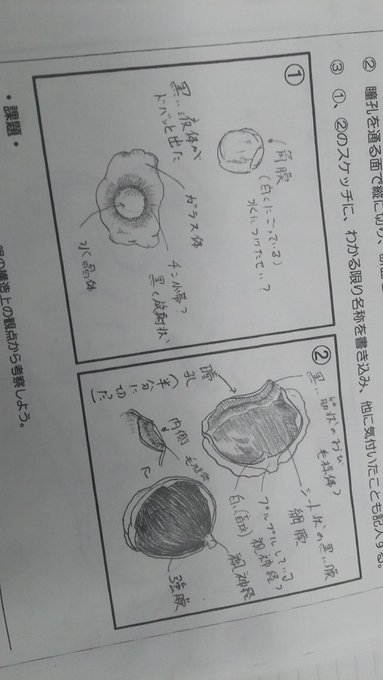 ② 瞳孔を通る面で縦に切り、
③ ①、②のスケッチに、わかる限り名称を書き込み、他に気付いたことも記入する。
①
角膜
(白くにごっている)
水につけたせい?
黒い液体が
ドバッと出た
ガラス体
チン小帯?
黒く放射状
水晶体
②
黒い筋状のおび
毛様体?
シート状の黒い膜
網膜
プルプルしている
視神経?
白い(盲斑)
視神経
瞳孔
(半分に切った)
内側
毛様体
強膜
・課題・
の構造上の観点から考察しよう。